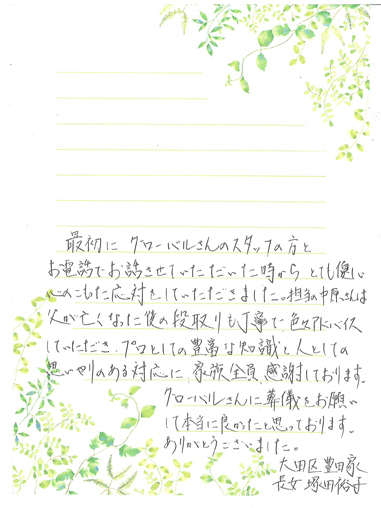 最初に グローバルさんのスタッフの方と
お電話でお話させていただいた時から とても優しい
心のこもった応対をしていただきました。担当の中原さんは
父が亡くなった後の段取りも丁寧で色々アドバイス
していただき、プロとしての豊富な知識と人としての
思いやりのある対応に 家族全員 感謝しております。
グローバルさんに葬儀をお願い
して本当に良かったと思っております。
ありがとうございました。
大田区 豊田家
長女 塚田裕子